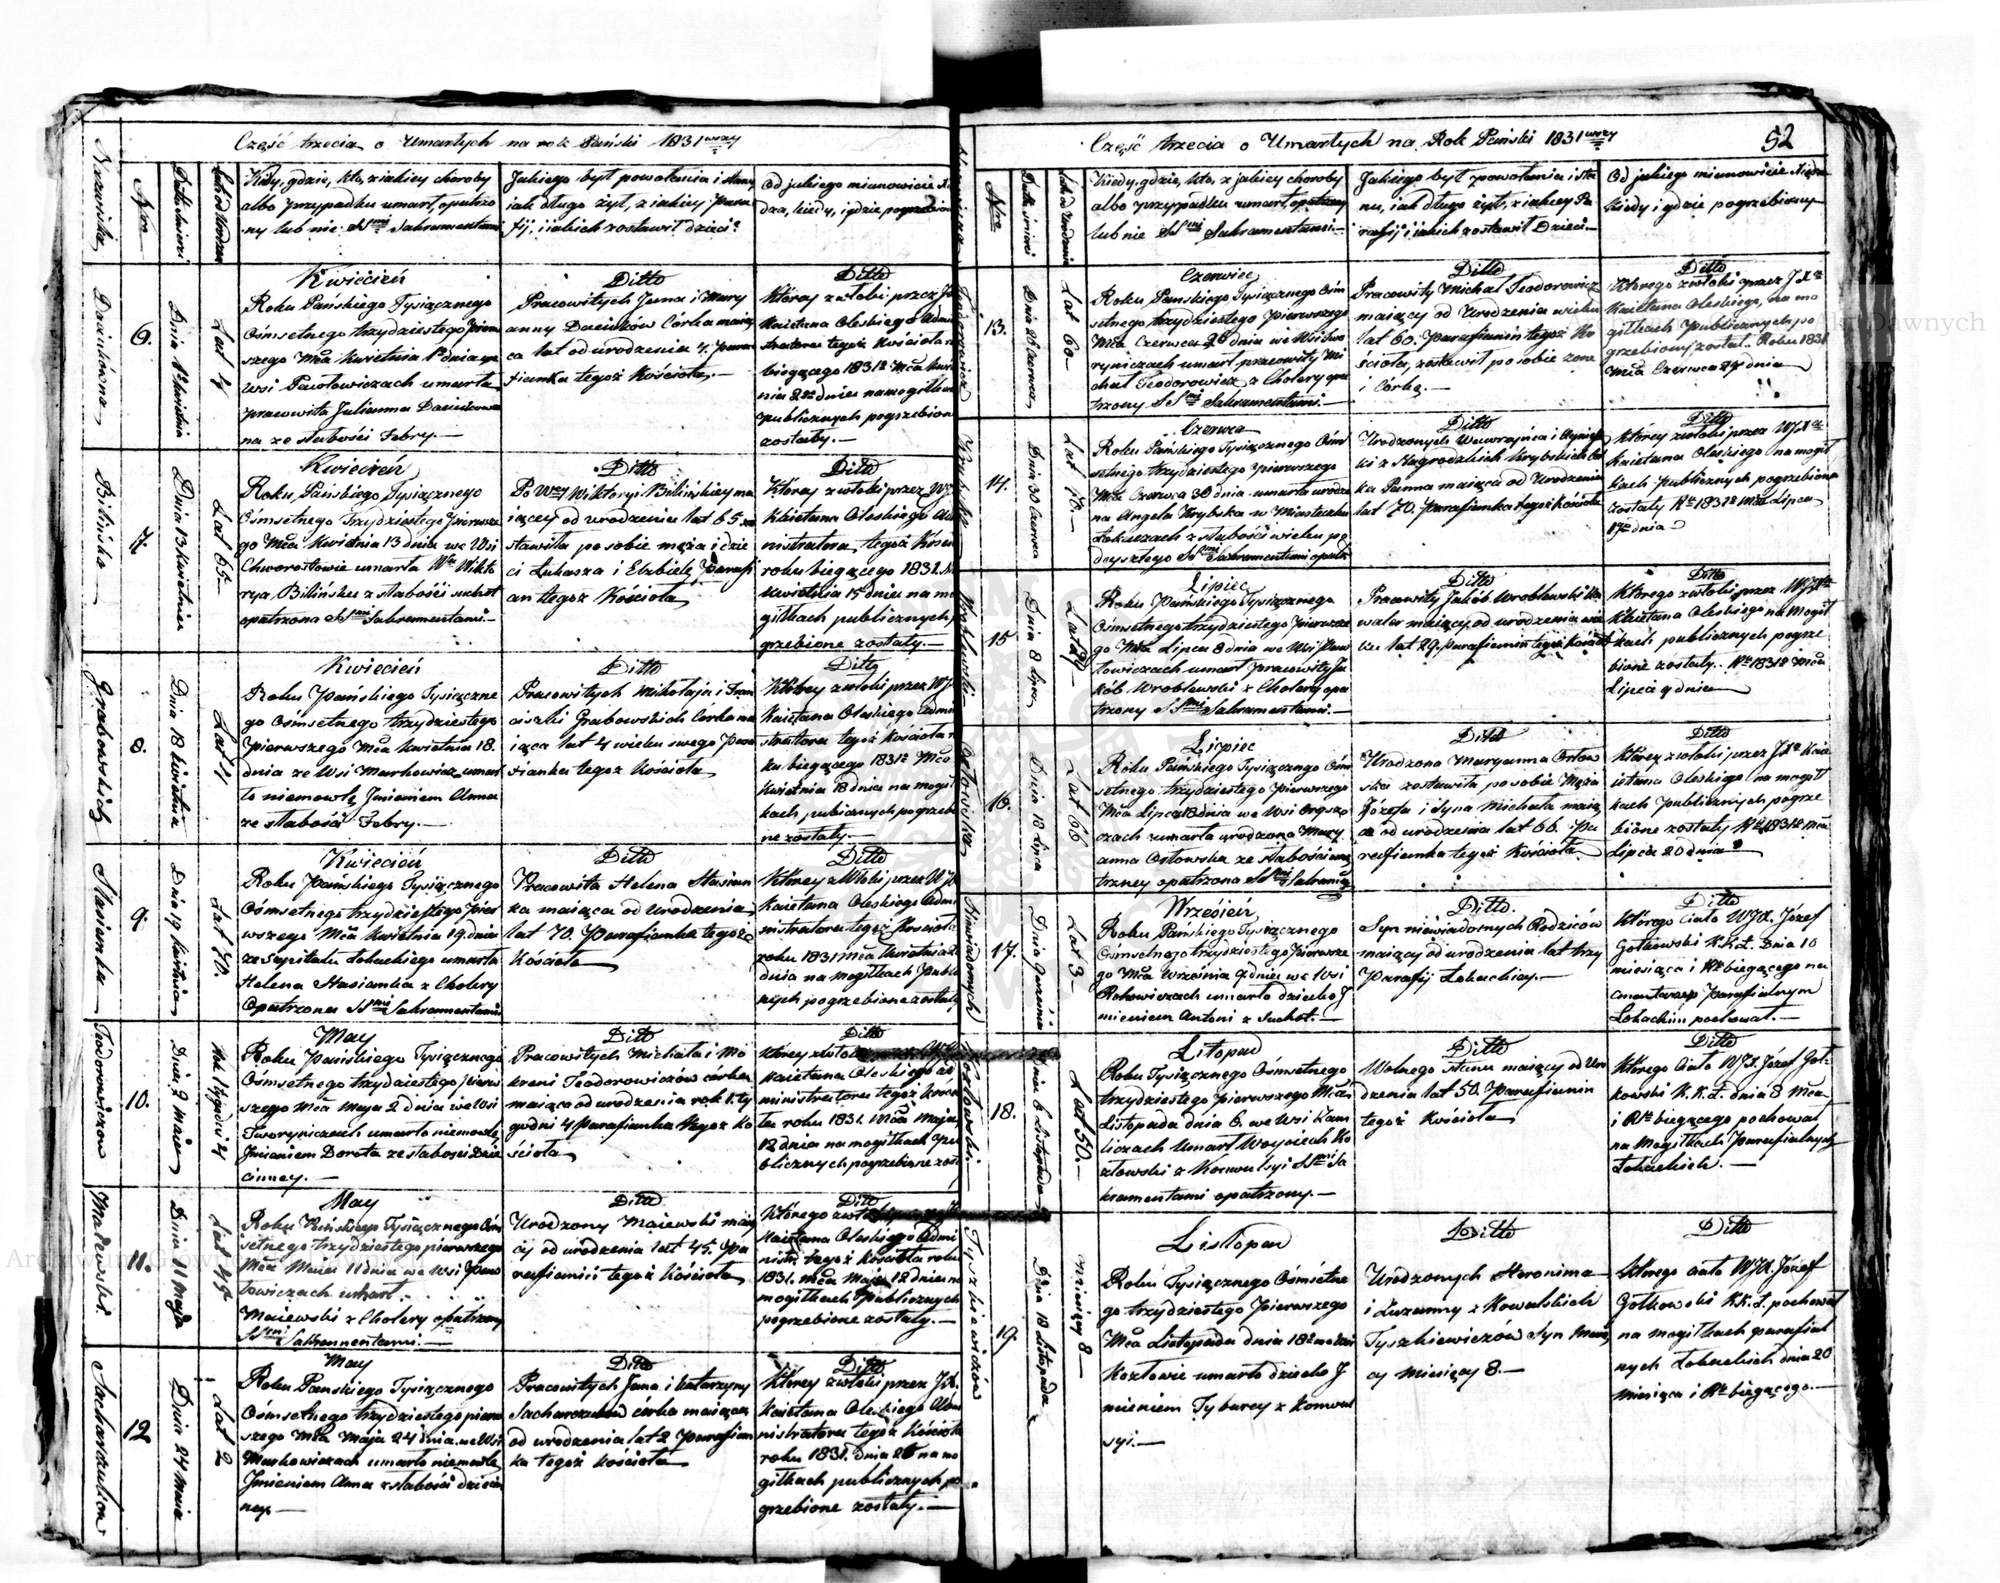 Część trzecia o Umarłych na rok Pański 1831wszy
Nazwiska
Nro
Kiedy, gdzie, kto, z iakiey choroby
albo przypadku umarł, opatrzo
ny lub nie SSmi Sakramentami
Jakiego był powołania i stanu
iak długo żył, z iakiey Para
fij, i iakich zostawił dzieci?
Od jakiego mianowicie
dza, kiedy, i gdzie pogrzebion
6.
Lat 4
Kwiecień
Roku Pańskiego Tysiącznego
Ośmsetnego trzydziestego pierw
szego Mca Kwietnia 1o dnia we
wsi Pawłowiczach umarła
pracowita Julianna
na ze słabości Febry.—
Ditto
Pracowitych Jana i Mary
anny Córka maią
ca lat od urodzenia 4. para
fianka tegoż Kościoła.—
Ditto
Którey zwłoki przez
Kaietana Oleskiego Admi
nistratora tegoż Kościoła
biegącego 1831o Mca Kwie
tnia 2o dnia na mogiłkach
publicznych pogrzebion
zostały.—
Bilińska
7.
Dnia 13 Kwietnia
Lat 65.—
Kwiecień
Roku Pańskiego Tysiącznego
Ośmsetnego Trzydziestego Pierwsze
go Mca Kwietnia 13 dnia we Wsi
Chworostowie umarła Wa Wikto
rya Bilińska z słabości suchot
opatrzona SSmi Sakramentami.—
Ditto
Wiktoryi Bilińskiey ma
iącey od urodzenia lat 65 zo
stawiła po sobie męża i dzie
ci Łukasza i Elżbietę, Parafi
an tegoż Kościoła
Ditto
Którey zwłoki przez
Kaietana Oleskiego Ad
ministratora tegoż Kościoła
roku biegącego 1831. M
Kwietnia 15 dnia na mo
giłkach publicznych po
grzebione zostały.—
Grabowskich
8.
Dnia 18 Kwietnia
Lat 4
Kwiecień
Roku Pańskiego Tysiączne
go Ośmsetnego trzydziestego
Pierwszego Mca Kwietnia 18.
dnia ze Wsi Markowicz umar
ło niemowlę Jmieniem Anna
ze słabości Febry.—
Ditto
Pracowitych Mikołaja i Fran
ciszki Grabowskich Corka ma
iąca lat 4 wieku swego Para
fianka tegoż Kościoła
Ditto
Którey zwłoki przez
Kaietana Oleskiego Admini
stratora tegoż Kościoła
ku biegącego 1831o Mca
Kwietnia 18 dnia na mogił
kach publicznych pogrzebio
ne zostały.—
Stasianka
9.
Dnia 19 Kwietnia
Lat 70.
Kwiecień
Roku Pańskiego Tysiącznego
Ośmsetnego trzydziestego Pier
wszego Mca Kwietnia 19. dnia
ze Szpitalu Łokackiego umarła
Helena Stasianka z Cholery
Opatrzona SSmi Sakramentami
Ditto
Pracowita Helena Stasian
ka maiąca od Urodzenia
lat 70. Parafianka tegoż
Kościoła
Ditto
Którey zwłoki przez
Kaietana Oleskiego Admi
nistratora tegoż Kościoła
roku 1831 Mca Kwietnia
dnia na mogiłkach Publi
cznych pogrzebione zostały
Teodorowiczow
10.
Dnia 2 Maia
Rok 1 tygodni 4
May
Roku Pańskiego Tysiącznego
Ośmsetnego trzydziestego pierw
szego Mca Maya 2 dnia we Wsi
Tworyniczach umarło niemowlę
Jmieniem Dorota ze słabości Dzie
cinney.—
Ditto
Pracowitych Michała i Ma
kreni Teodorowiczów córka
maiąca od urodzenia rok 1. ty
godni 4 Parafianka tegoż Ko
ścioła
Ditto
Którey
Kaietana Oleskiego Ad
ministratora tegoż Kościo
ła roku 1831. Mca Maja
dnia na mogiłkach pu
blicznych pogrzebione zost
Maiewski.
11.
Dnia 11 Maja
Lat 45.
May
Roku Pańskiego Tysiącznego Ośm
setnego trzydziestego pierwszego
Mca Maia 11 dnia we Wsi Paw
łowiczach umarł
Maiewski z Cholery opatrzony
SSmi Sakramentami.—
Ditto
Urodzony Maiewski maią
cy od urodzenia lat 45. Pa
rafianin tegoż Kościoła
Ditto
Którego zwłoki
Kaietana Oleskiego Admi
nistr. tegoż Kościoła roku
1831. Mca Maja 12 dnia na
mogiłkach publicznych
pogrzebione zostały.—
12
Dnia 24 Maia
Lat 2
May
Roku Pańskiego Tysiącznego
Ośmsetnego trzydziestego pierw
szego Mca Maja 24 dnia we Wsi
Markowiczach umarło niemowlę
Jmieniem Anna z słabości dziecin
ney.—
Ditto
Pracowitych Jana i Katarzyny
córka maiąca
od urodzenia lat 2 Parafian
ka tegoż Kościoła
Ditto
Którey zwłoki przez JX.
Kaietana Oleskiego Admi
nistratora tegoż Kościoła
roku 1831. dnia 26 na mo
giłkach publicznych po
grzebione zostały.—
Część trzecia o Umarłych na Rok Pański 1831wszy
52
Nro
Kiedy, gdzie, kto, z jakiey choroby
albo przypadku umarł opatrzony
lub nie SSmi Sakramentami.—
Jakiego był powołania i sta
nu, iak długo żył, z iakiey Pa
rafij i iakich zostawił Dzieci.—
Od jakiego mianowicie Xiędza
Kiedy i gdzie pogrzebiony
Teodorowicz
13.
Dnia 26 Czerwca
Lat 60—
Czerwiec
Roku Pańskiego Tysiącznego Ośm
setnego trzydziestego Pierwszego
Mca Czerwca 26 dnia we Wsi Two
ryniczach umarł pracowity Mi
chał Teodorowicz z Cholery opa
trzony SSmi Sakramentami.—
Ditto
Pracowity Michał Teodorowicz
maiący od Urodzenia wieku
lat 60. Parafianin tegoż Ko
ścioła, zostawił po sobie żonę
i Córkę.—
Ditto
Którego zwłoki przez JXa
Kaietana Oleskiego, na mo
giłkach Publicznych po
grzebiony został. Roku 1831
Mca Czerwca 27 dnia
14.
Dnia 30 Czerwca
Lat 70.—
Czerwca
Roku Pańskiego Tysiącznego Ośm
setnego trzydziestego pierwszego
Mca Czerwca 30 dnia umarła urodzo
na Angela Krybska w Miasteczku
Łokaczach z słabości wieku po
deyszłego SSmi Sakramentami opatrz
Ditto
Urodzonych Wawrzyńca i Agniesz
ki z Krybskich Cor
ka Panna maiąca od Urodzenia
lat 70. Parafianka tegoż Kościoła
Ditto
Którey zwłoki przez WJXa
Kaietana Oleskiego na mogił
kach Publicznych pogrzebione
zostały Ro 1831o Mca Lipca
dnia
Wroblewski
15
Dnia 8 Lipca
Lipiec
Roku Pańskiego Tysiącznego
Ośmsetnego trzydziestego Pierwsze
go Mca Lipca 8 dnia we Wsi Paw
łowiczach umarł Pracowity Ja
kób Wroblewski z Cholery opa
trzony SSmi Sakramentami.—
Ditto
Pracowity Jakób Wroblewski Ka
waler maiący od urodzenia wie
ku lat 29. Parafianin tegoż Kościoła
Ditto
Którego zwłoki przez WJXa
Kaietana Oleskiego na Mogił
kach publicznych pogrze
bione zostały. Ro 1831o Mca
Lipca 9 dnia
Orłowska
16.
Dnia 18 Lipca
Lat 66
Lipiec
Roku Pańskiego Tysiącznego Ośm
setnego trzydziestego Pierwszego
Mca Lipca 18 dnia we Wsi
czach umarła urodzona Mary
anna Orłowska ze słabości
opatrzona SSmi Sakramen
Ditto
Urodzona Maryanna Orłow
ska zostawiła po sobie Męża
Józefa i syna Michała maią
ca od urodzenia lat 66. Pa
rafianka tegoż Kościoła
Ditto
Którey zwłoki przez JXa Kai
ietana Oleskiego na mogił
kach Publicznych pogrze
bione zostały Ro 1831o Mca
Lipca 20 dnia
Niewiadomych
17.
Dnia 9 Września
Lat 3—
Wrzesień
Roku Pańskiego Tysiącznego
Ośmsetnego trzydziestego Pierwsze
go Mca Września 9 dnia we Wsi
Rohowiczach umarło dziecko J
mieniem Antoni z Suchot.—
Ditto
Syn niewiadomych Rodziców
maiący od urodzenia lat trzy
Parafij Łokackiey.—
Ditto
Którego Ciało WJX. Józef
Gołkowski K.K.Ł. Dnia 10
miesiąca i Ro biegącego na
cmentarzu Parafialnym
Łokackim pochował.—
Kozłowski.
18.
Dnia 6 Listopada
Lat 50.—
Listopad
Roku Tysiącznego Ośmsetnego
trzydziestego pierwszego Mca
Listopada dnia 6. we Wsi Kam
liczach Umarł Woyciech Ko
złowski z Konwulsyi SSmi Sa
kramentami opatrzony.—
Ditto
Wolnego Stanu maiący od Uro
dzenia lat 50. Parafianin
tegoż Kościoła
Ditto
Którego Ciało WJX. Józef Goł
kowski K.K.Ł. dnia 8 Mca
i Ro biegącego pochował
na Mogiłkach Parafialnych
Łokackich.—
Tyszkiewiczów
19.
Dnia 18 Listopada
miesięcy 8—
Listopad
Roku Tysiącznego Ośmsetne
go trzydziestego Pierwszego
Mca Listopada dnia 18o we Wsi
Kozłowie umarło dziecko J
mieniem Tyburcy z Konwul
syi.—
Ditto
Urodzonych Heronima
i Zuzanny z Kowalskich
Tyszkiewiczów Syn maią
cy miesięcy 8.—
Ditto
Którego ciało WJX. Józef
Gołkowski K.K.Ł. pochował
na mogiłkach parafial
nych Łokackich dnia 20
miesiąca i Ro biegącego.—